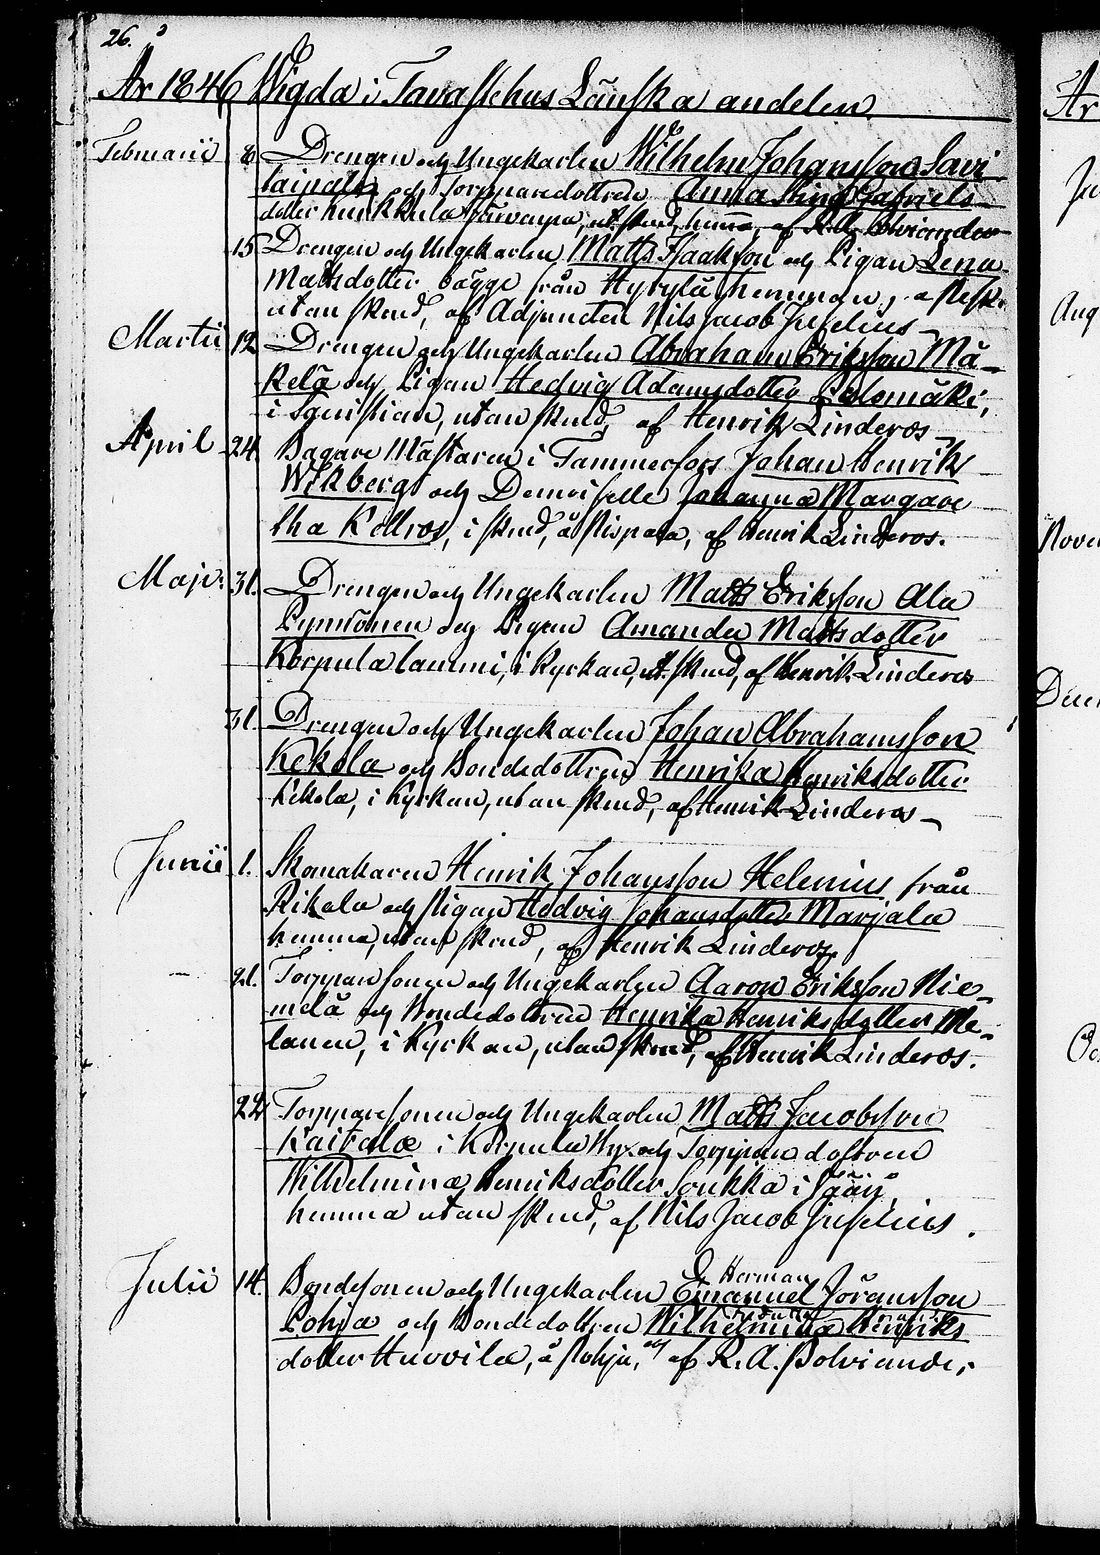 26.
År 1846 Wigda i Tavastehus Länska andelen
Februarii 8. Drengen och Ungekarlen Wilhelm Johansson Savi
laipalo och Torpparedottren Anna Stina Gabriels
dotter Kurkkula Järvenpä, ut. skud, hemma, af
15 Drengen och Ungekarlen Matts Isaaksson och Pigan Lena
Matsdotter bägge från Hyrylä hemman,
utan skud, af Adjuncten Nils Jacob Juselius
Martii 12 Drengen och Ungekarlen Abraham Eriksson Mä-
kelä och Pigan Hedvig Adamsdotter
i utan skud, af Henrik Linderos
April 24. Bagare Mästaren i Tammerfors Johan Henrik
Wikberg och Demoiselle Johanna Margare
tha Kellros, i skud, å Pispala, af Henrik Linderos.
Maji: 31. Drengen och Ungekarlen Matts Eriksson Ala
och Pigan Amanda Mattsdotter
Korpula lammi, i Kyrkan, ut. skud, af Henrik Linderos
31. Drengen och Ungekarlen Johan Abrahamsson
Kekola och Bondedottren Henrika Henriksdotter
Kekola, i Kyrkan, utan skud, af Henrik Linderos
Junii 1. Skomakaren Henrik Johansson Helenius från
Rikala och Pigan Hedvig Johansdotter Marjala
hemma, utan skud, af Henrik Linderos.
21. Torpparesonen och Ungekarlen Aaron Eriksson Nie-
melä och Bondedottren Henrika Henriksdotter Me-
lanen, i Kyrkan, utan skud, af Henrik Linderos.
22 Torpparesonen och Ungekarlen Matts Jacobsson
Kaitala i Korpula by och Torppare dottren
Wilhelmina Henriksdotter Soukka i Sääxj
hemma utan skud, af Nils Jacob Juselius.
Julii 14. Bondesonen och Ungekarlen Emanuel Herman Jöransson
Pohja och Bondedottren Wilhelmina Henriks
dotter Huovila, å Pohja, af R. A. Polviander